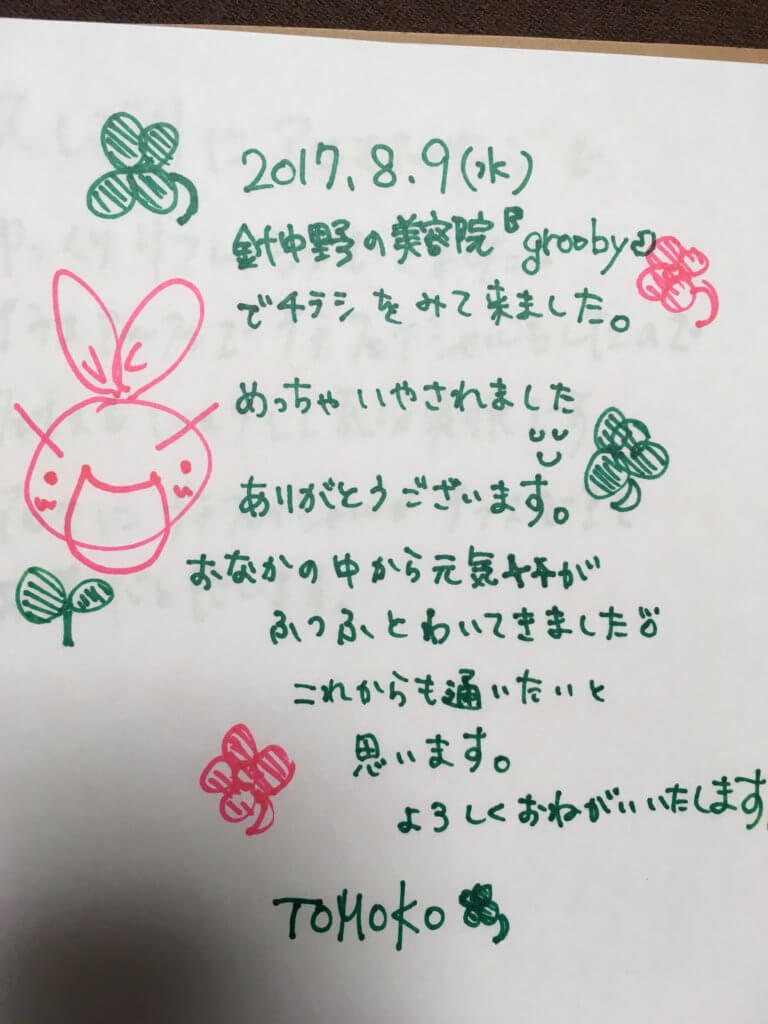 2017.8.9(水)
針中野の美容院『grooby』
でチラシをみて来ました。
めっちゃいやされました
ありがとうございます。
おなかの中から元気ヤチが
ふつふとわいてきました
これからも通いたいと
思います。
よろしくおねがいいたします
TOMOKO